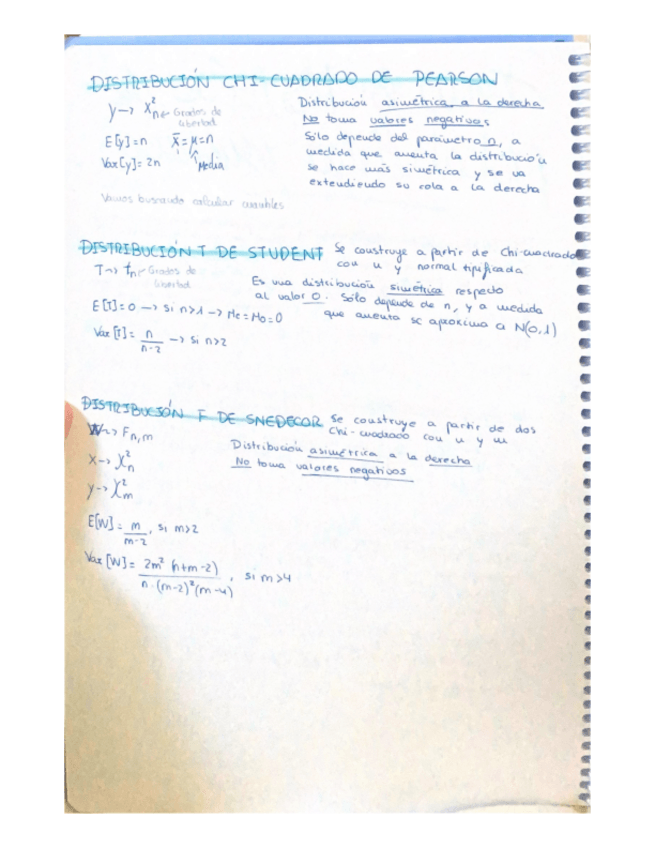 DISTRIBUCIÓN CHI-CUADRADO DE PEARSON
y → X²n ← Grados de libertad
E[y] = n   x̄ = μ = n
Var[y] = 2n   Media
Distribución asimétrica a la derecha
No toma valores negativos
Sólo depende del parámetro n, a
medida que aumenta la distribución
se hace más simétrica y se va
extendiendo su cola a la derecha
Vamos buscando calcular variables
DISTRIBUCIÓN T DE STUDENT Se construye a partir de Chi-cuadrado
con n y normal tipificada
T → tn ← Grados de libertad
Es una distribución simétrica respecto
al valor 0. Sólo depende de n, y a medida
que aumenta se aproxima a N(0,1)
E[T] = 0 → si n>1 → Me = Mo = 0
Var[T] = n/(n-2) → si n>2
DISTRIBUCIÓN F DE SNEDECOR Se construye a partir de dos
Chi-cuadrado con n y m
W → Fn,m
Distribución asimétrica a la derecha
No toma valores negativos
X → X²n
y → X²m
E[W] = m/(m-2), si m>2
Var[W] = 2m²(n+m-2)/(n·(m-2)²(m-4)), si m>4